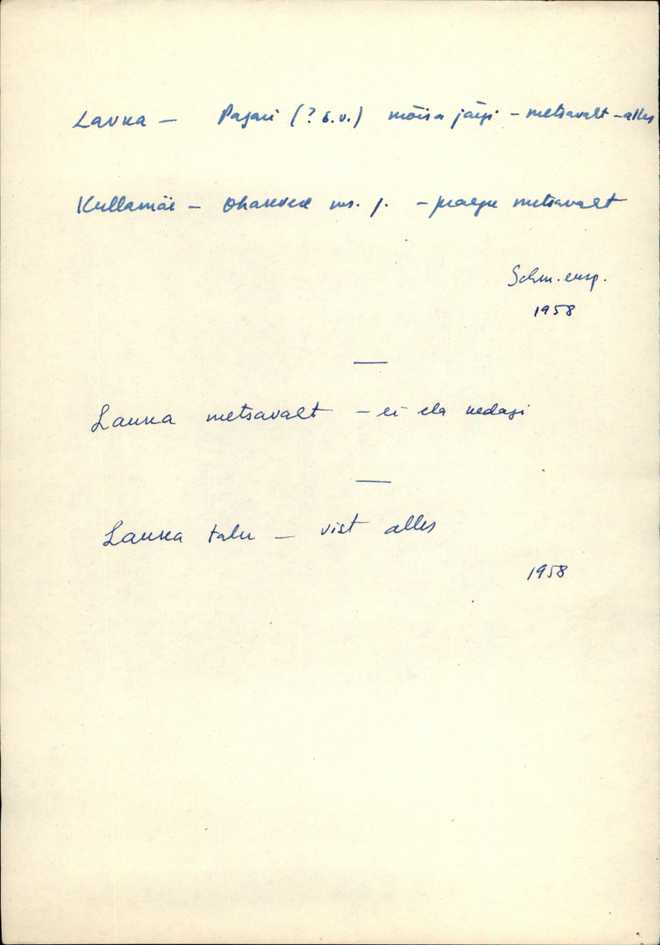 Lauka — Pagari (? s.v.) mõisa järgi – metsavalt – alles
Kullamäe – ms. j. – praegu metsavalt
1958
Lauka metsavaht – ei ela kedagi
Lauka talu – vist alles
1958